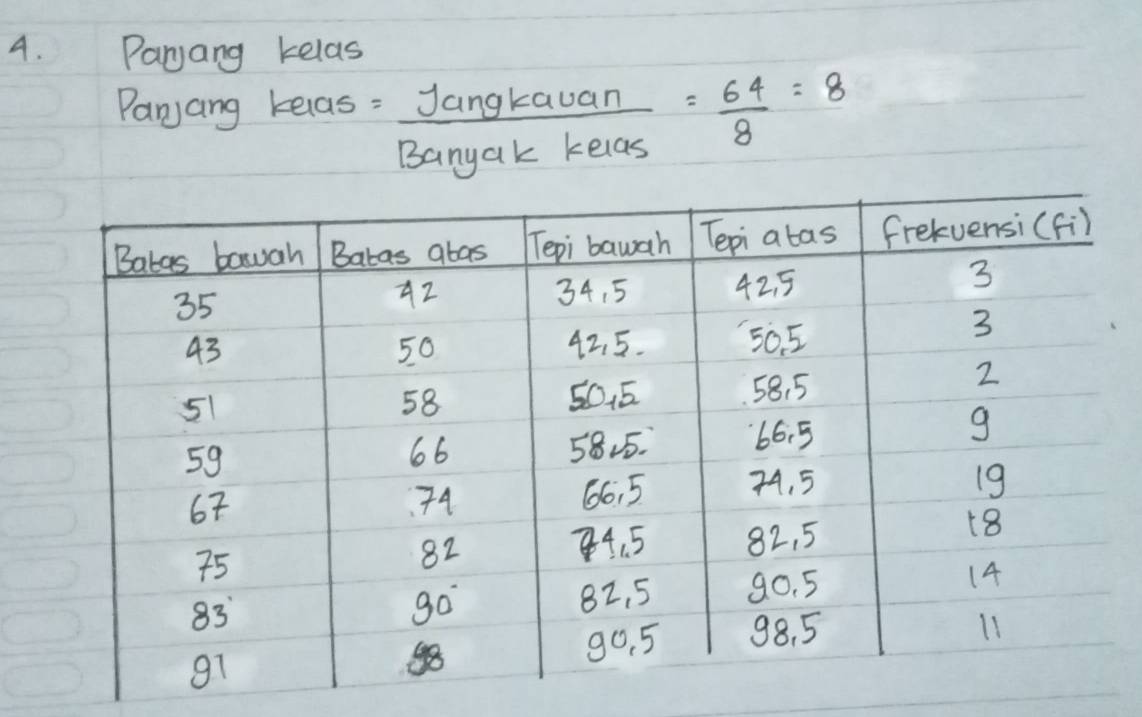 4. Panjang kelas
Panjang kelas = Jangkauan / Banyak kelas = 64 / 8 = 8
Batas bawah Batas atas Tepi bawah Tepi atas Frekuensi (fi)
35 42 34,5 42,5 3
43 50 42,5 50,5 3
51 58 50,5 58,5 2
59 66 58,5 66,5 9
67 74 66,5 74,5 19
75 82 74,5 82,5 18
83 90 82,5 90,5 14
91 98 90,5 98,5 11